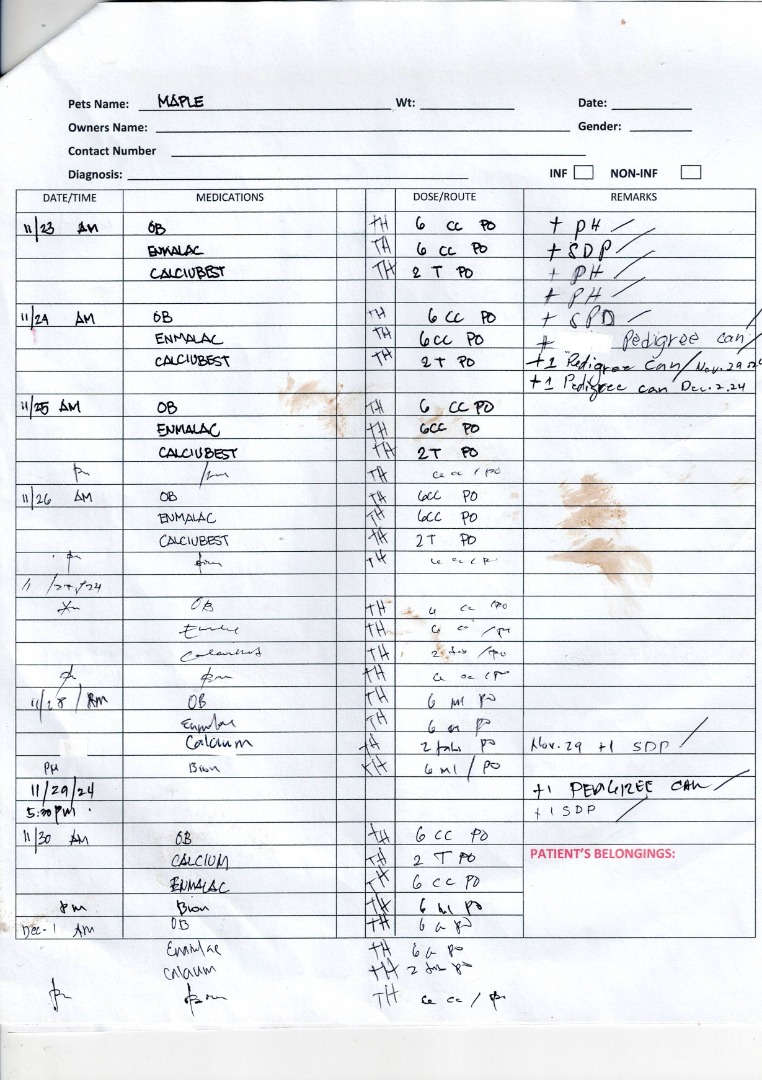 Pets Name: MAPLE Wt: Date:
Owners Name: Gender:
Contact Number
Diagnosis: INF NON-INF
DATE/TIME MEDICATIONS DOSE/ROUTE REMARKS
11/23 AM OB TH 6 cc PO + PH /
ENMALAC TH 6 cc PO + SDP /
CALCIUBEST TH 2 T PO + PH /
+ PH /
11/24 AM OB TH 6 cc PO + SPD /
ENMALAC TH 6cc PO + Pedigree can /
CALCIUBEST TH 2T PO +1 Pedigree can / Nov. 29
+1 Pedigree can Dec. 2.24
11/25 AM OB TH 6 cc PO
ENMALAC TH 6cc PO
CALCIUBEST TH 2T PO
pm TH cc / po
11/26 AM OB TH 6cc PO
ENMALAC TH 6cc PO
CALCIUBEST TH 2T PO
pm TH
11/27/24
OB TH cc po
TH 6 cc / po
TH 2 tab / po
TH cc / po
11/28 / Am OB TH 6 ml po
TH 6 po
Calcium TH 2 tabs po Nov. 29 +1 SDP /
PM Bion TH 6 ml / po
11/29/24 +1 PEDIGREE CAN /
5:30 pm +1 SDP /
11/30 AM OB TH 6 cc PO
CALCIUM TH 2 T PO PATIENT'S BELONGINGS:
ENMALAC TH 6 cc PO
pm Bion TH 6 ml po
Dec. 1 AM OB TH 6 po
TH 6 po
Calcium TH 2 po
pm TH cc / po